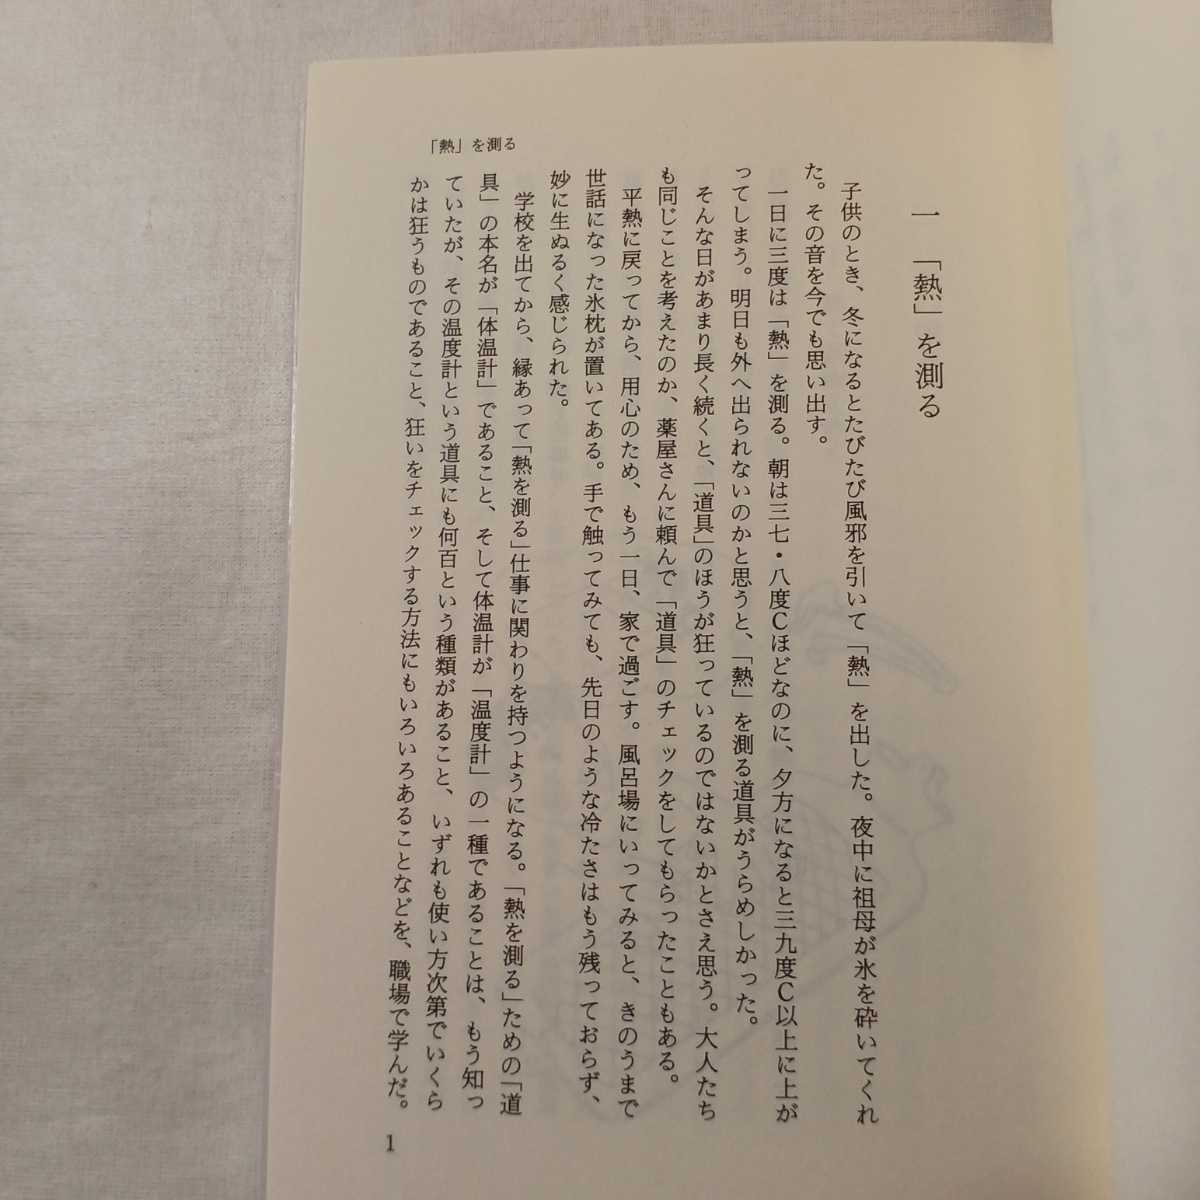 一 「熱」を測る
子供のとき、冬になるとたびたび風邪を引いて「熱」を出した。夜中に祖母が氷を砕いてくれ
た。その音を今でも思い出す。
一日に三度は「熱」を測る。朝は三七・八度Cほどなのに、夕方になると三九度C以上に上が
ってしまう。明日も外へ出られないのかと思うと、「熱」を測る道具がうらめしかった。
そんな日があまり長く続くと、「道具」のほうが狂っているのではないかとさえ思う。大人たち
も同じことを考えたのか、薬屋さんに頼んで「道具」のチェックをしてもらったこともある。
平熱に戻ってから、用心のため、もう一日、家で過ごす。風呂場にいってみると、きのうまで
世話になった氷枕が置いてある。手で触ってみても、先日のような冷たさはもう残っておらず、
妙に生ぬるく感じられた。
学校を出てから、縁あって「熱を測る」仕事に関わりを持つようになる。「熱を測る」ための「道
具」の本名が「体温計」であること、そして体温計が「温度計」の一種であることは、もう知っ
ていたが、その温度計という道具にも何百という種類があること、いずれも使い方次第でいくら
かは狂うものであること、狂いをチェックする方法にもいろいろあることなどを、職場で学んだ。
「熱」を測る
1